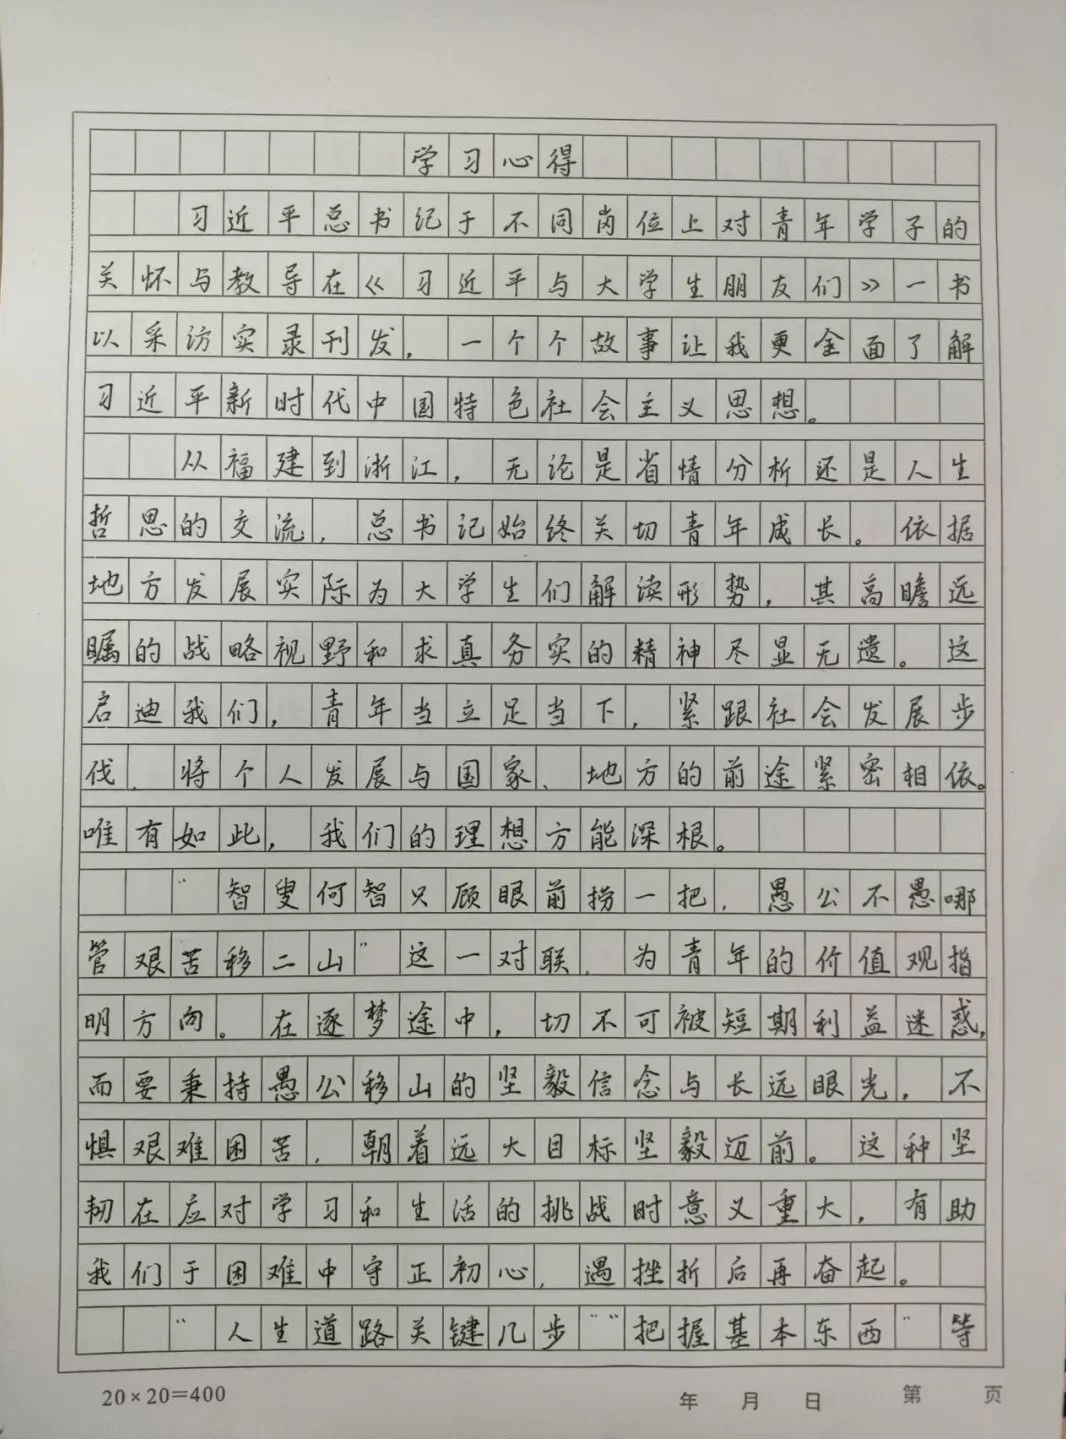 学习心得
习近平总书纪于不同岗位上对青年学子的
关怀与教导在《习近平与大学生朋友们》一书
以采访实录刊发，一个个故事让我更全面了解
习近平新时代中国特色社会主义思想。
从福建到浙江，无论是省情分析还是人生
哲思的交流，总书记始终关切青年成长。依据
地方发展实际为大学生们解读形势，其高瞻远
瞩的战略视野和求真务实的精神尽显无遗。这
启迪我们，青年当立足当下，紧跟社会发展步
伐，将个人发展与国家、地方的前途紧密相依。
唯有如此，我们的理想方能深根。
“智叟何智只顾眼前捞一把，愚公不愚哪
管艰苦移二山”这一对联，为青年的价值观指
明方向。在逐梦途中，切不可被短期利益迷惑，
而要秉持愚公移山的坚毅信念与长远眼光，不
惧艰难困苦，朝着远大目标坚毅迈前。这种坚
韧在应对学习和生活的挑战时意义重大，有助
我们于困难中守正初心，遇挫折后再奋起。
“人生道路关键几步”“把握基本东西”等
20×20=400
年 月 日 第 页